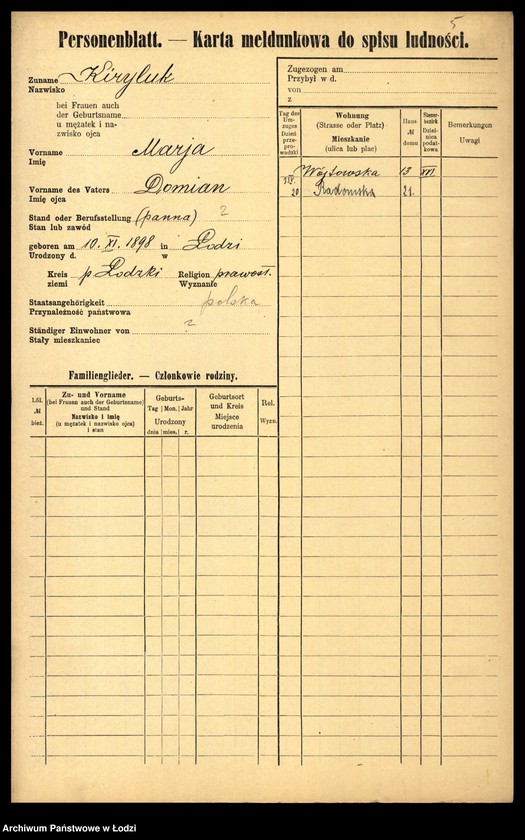 5
Personenblatt. — Karta meldunkowa do spisu ludności.
Zuname Kiryluk
Nazwisko
bei Frauen auch
der Geburtsname
u mężatek i na-
zwisko ojca
Vorname Marja
Imię
Vorname des Vaters Domian
Imię ojca
Stand oder Berufsstellung (panna) ?
Stan lub zawód
geboren am 10. XI. 1898 in Łodzi
Urodzony d. w
Kreis p. Łodzki Religion prawosł.
ziemi Wyznanie
Staatsangehörigkeit polska
Przynależność państwowa
Ständiger Einwohner von ?
Stały mieszkaniec
Zugezogen am
Przybył w d.
von
z
Tag des Um-zuges Dzień prze-prowadzki
Wohnung (Strasse oder Platz) Mieszkanie (ulica lub plac)
Haus- № domu
Steuer-bezirk Dziel-nica podat-kowa
Bemerkungen Uwagi
Wójtowska 13 XVI
20 Radomska 21.
Familienglieder. — Członkowie rodziny.
Lfd. № bież.
Zu- und Vorname (bei Frauen auch der Geburtsname) und Stand Nazwisko i imię (u mężatek i nazwisko ojca) i stan
Geburts- Tag Mon. Jahr Urodzony dnia mies. r.
Geburtsort und Kreis Miejsce urodzenia
Rel. Wyzn.
Archiwum Państwowe w Łodzi